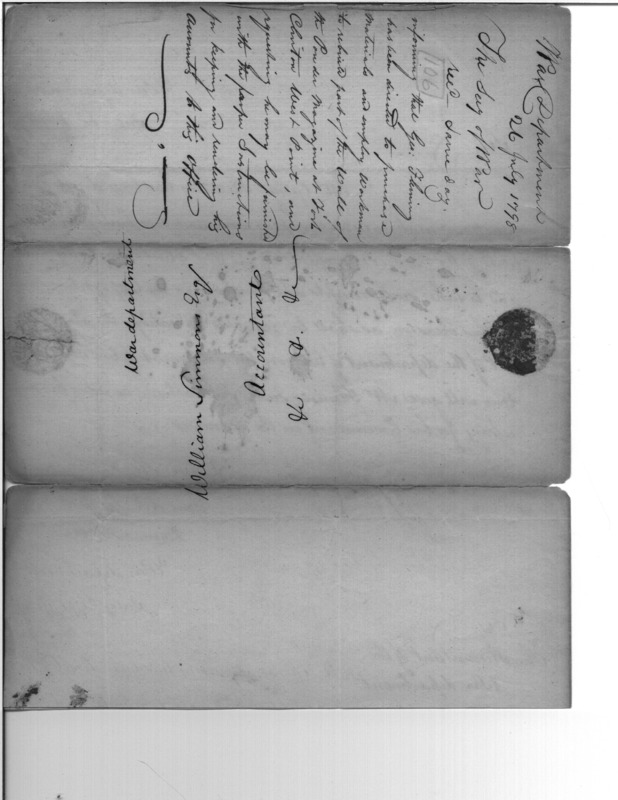 War Department
26 July 1798
The Secy of War
recd same day.
106
informing that Geo: Fleming
has been directed to purchase
Materials and employ Workmen
to rebuild part of the Wall of
the Powder Magazine at Fort
Clinton West Point, and
requesting he may be furnished
with the proper Instructions
for keeping and rendering his
accounts to this Office
&c &. &c
Accountant
William Simmons Esqr
War department